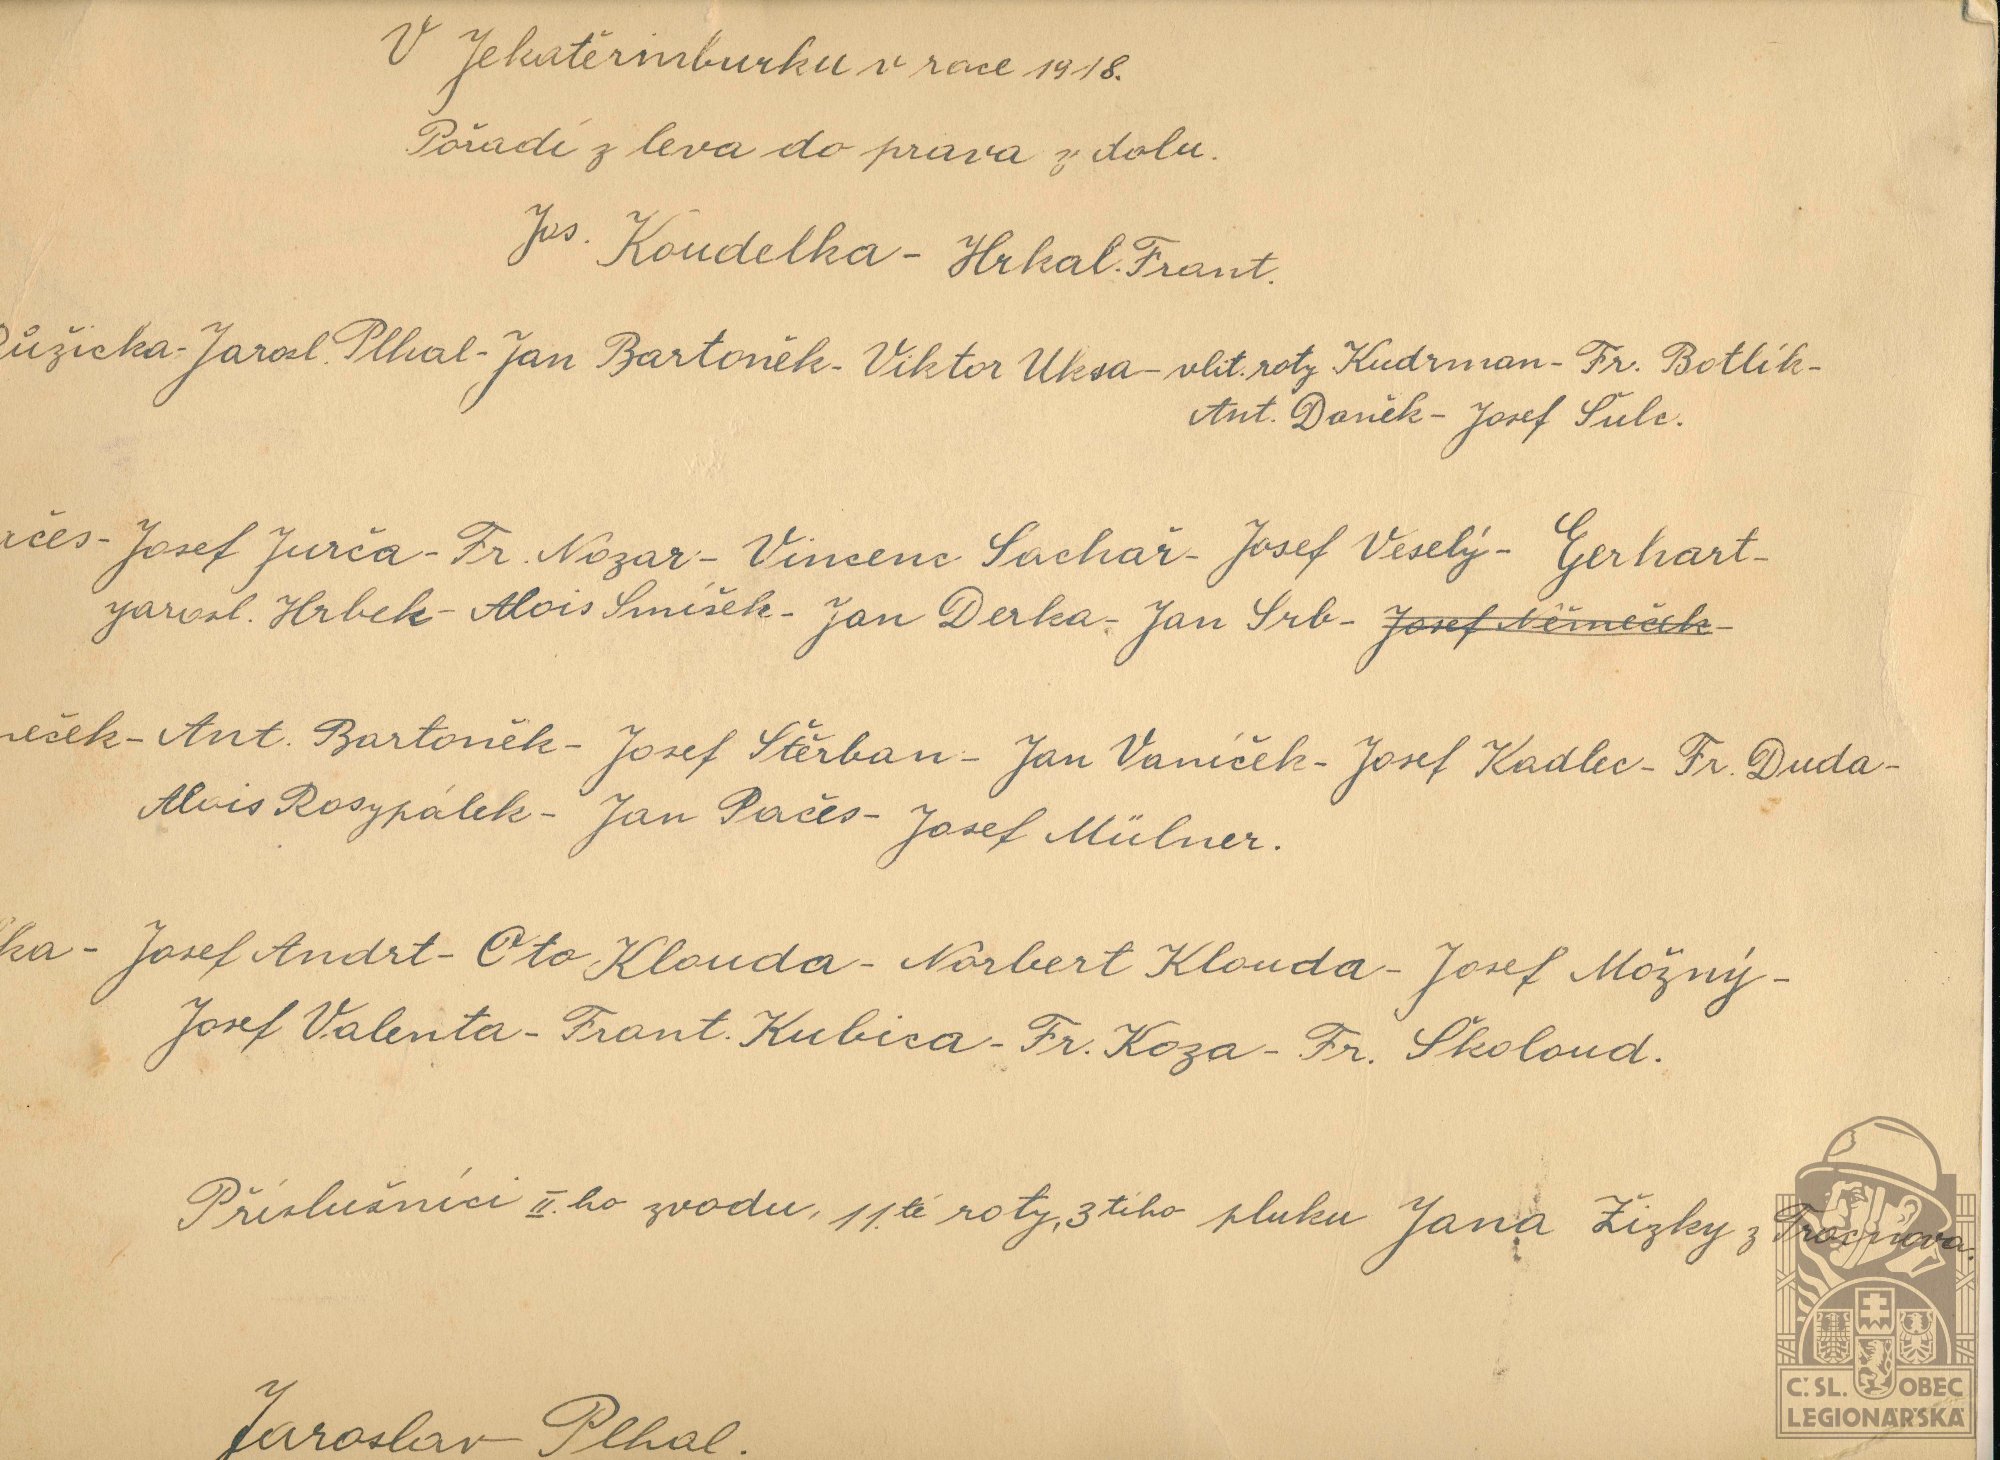 V Jekatěrinburku v roce 1918.
Pořadí z leva do prava z dolu.
Jos. Koudelka - Hrkal. Frant.
Růžicka - Jarosl. Plhal - Jan Bartoněk - Viktor Uksa - vlit. roty Kudrman - Fr. Botlík -
Ant. Daněk - Josef Šulc.
Josef Jurča - Fr. Nozar - Vincenc Sachař - Josef Veselý - Gerhart -
Jarosl. Hrbek - Alois Smíšek - Jan Derka - Jan Srb - Josef Němeček -
Ant. Bartoněk - Josef Štěrban - Jan Vaníček - Josef Kadlec - Fr. Duda -
Alois Rosypálek - Jan Pačes - Josef Mülner.
Josef Andrt - Oto Klouda - Norbert Klouda - Josef Možný -
Josef Valenta - Frant. Kubica - Fr. Koza - Fr. Školoud.
Příslušníci II.ho zvodu, 11.té roty, 3tího pluku Jana Žižky z Trocnova.
Jaroslav Plhal.
Č.SL. OBEC
LEGIONÁŘSKÁ